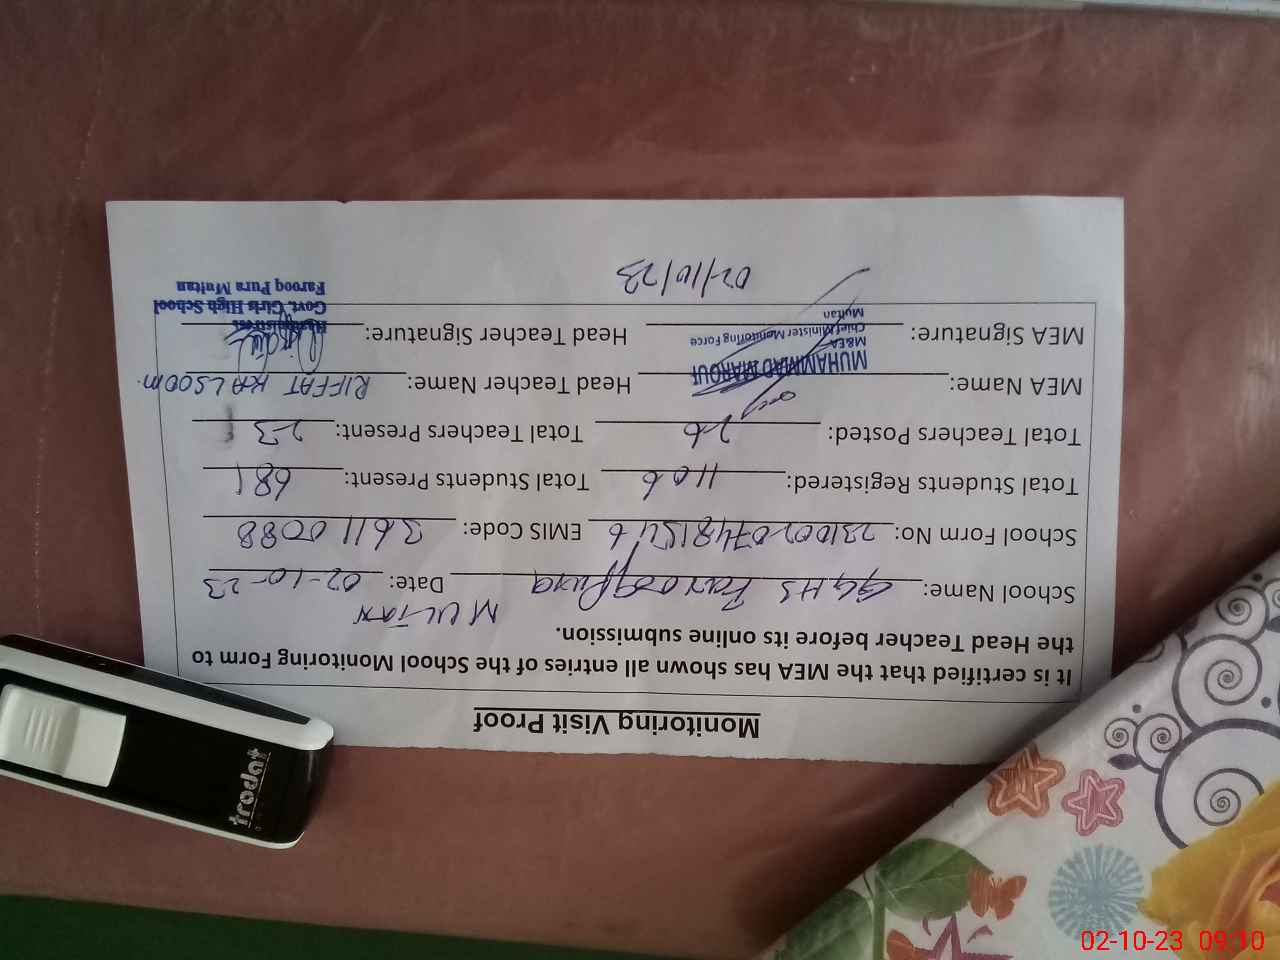 Monitoring Visit Proof
It is certified that the MEA has shown all entries of the School Monitoring Form to
the Head Teacher before its online submission.
MULTAN
School Name: GGHS Farooq Pura Date: 02-10-23
School Form No: EMIS Code: 36110088
Total Students Registered: 1106 Total Students Present: 681
Total Teachers Posted: 26 Total Teachers Present: 23
MEA Name: MUHAMMAD MAROUF Head Teacher Name: RIFFAT KALSOOM.
M&EA
Chief Minister Monitoring Force
Multan
MEA Signature: Head Teacher Signature:
Headmistress
Govt. Girls High School
Farooq Pura Multan
02/10/23
trodat
02-10-23 09:10